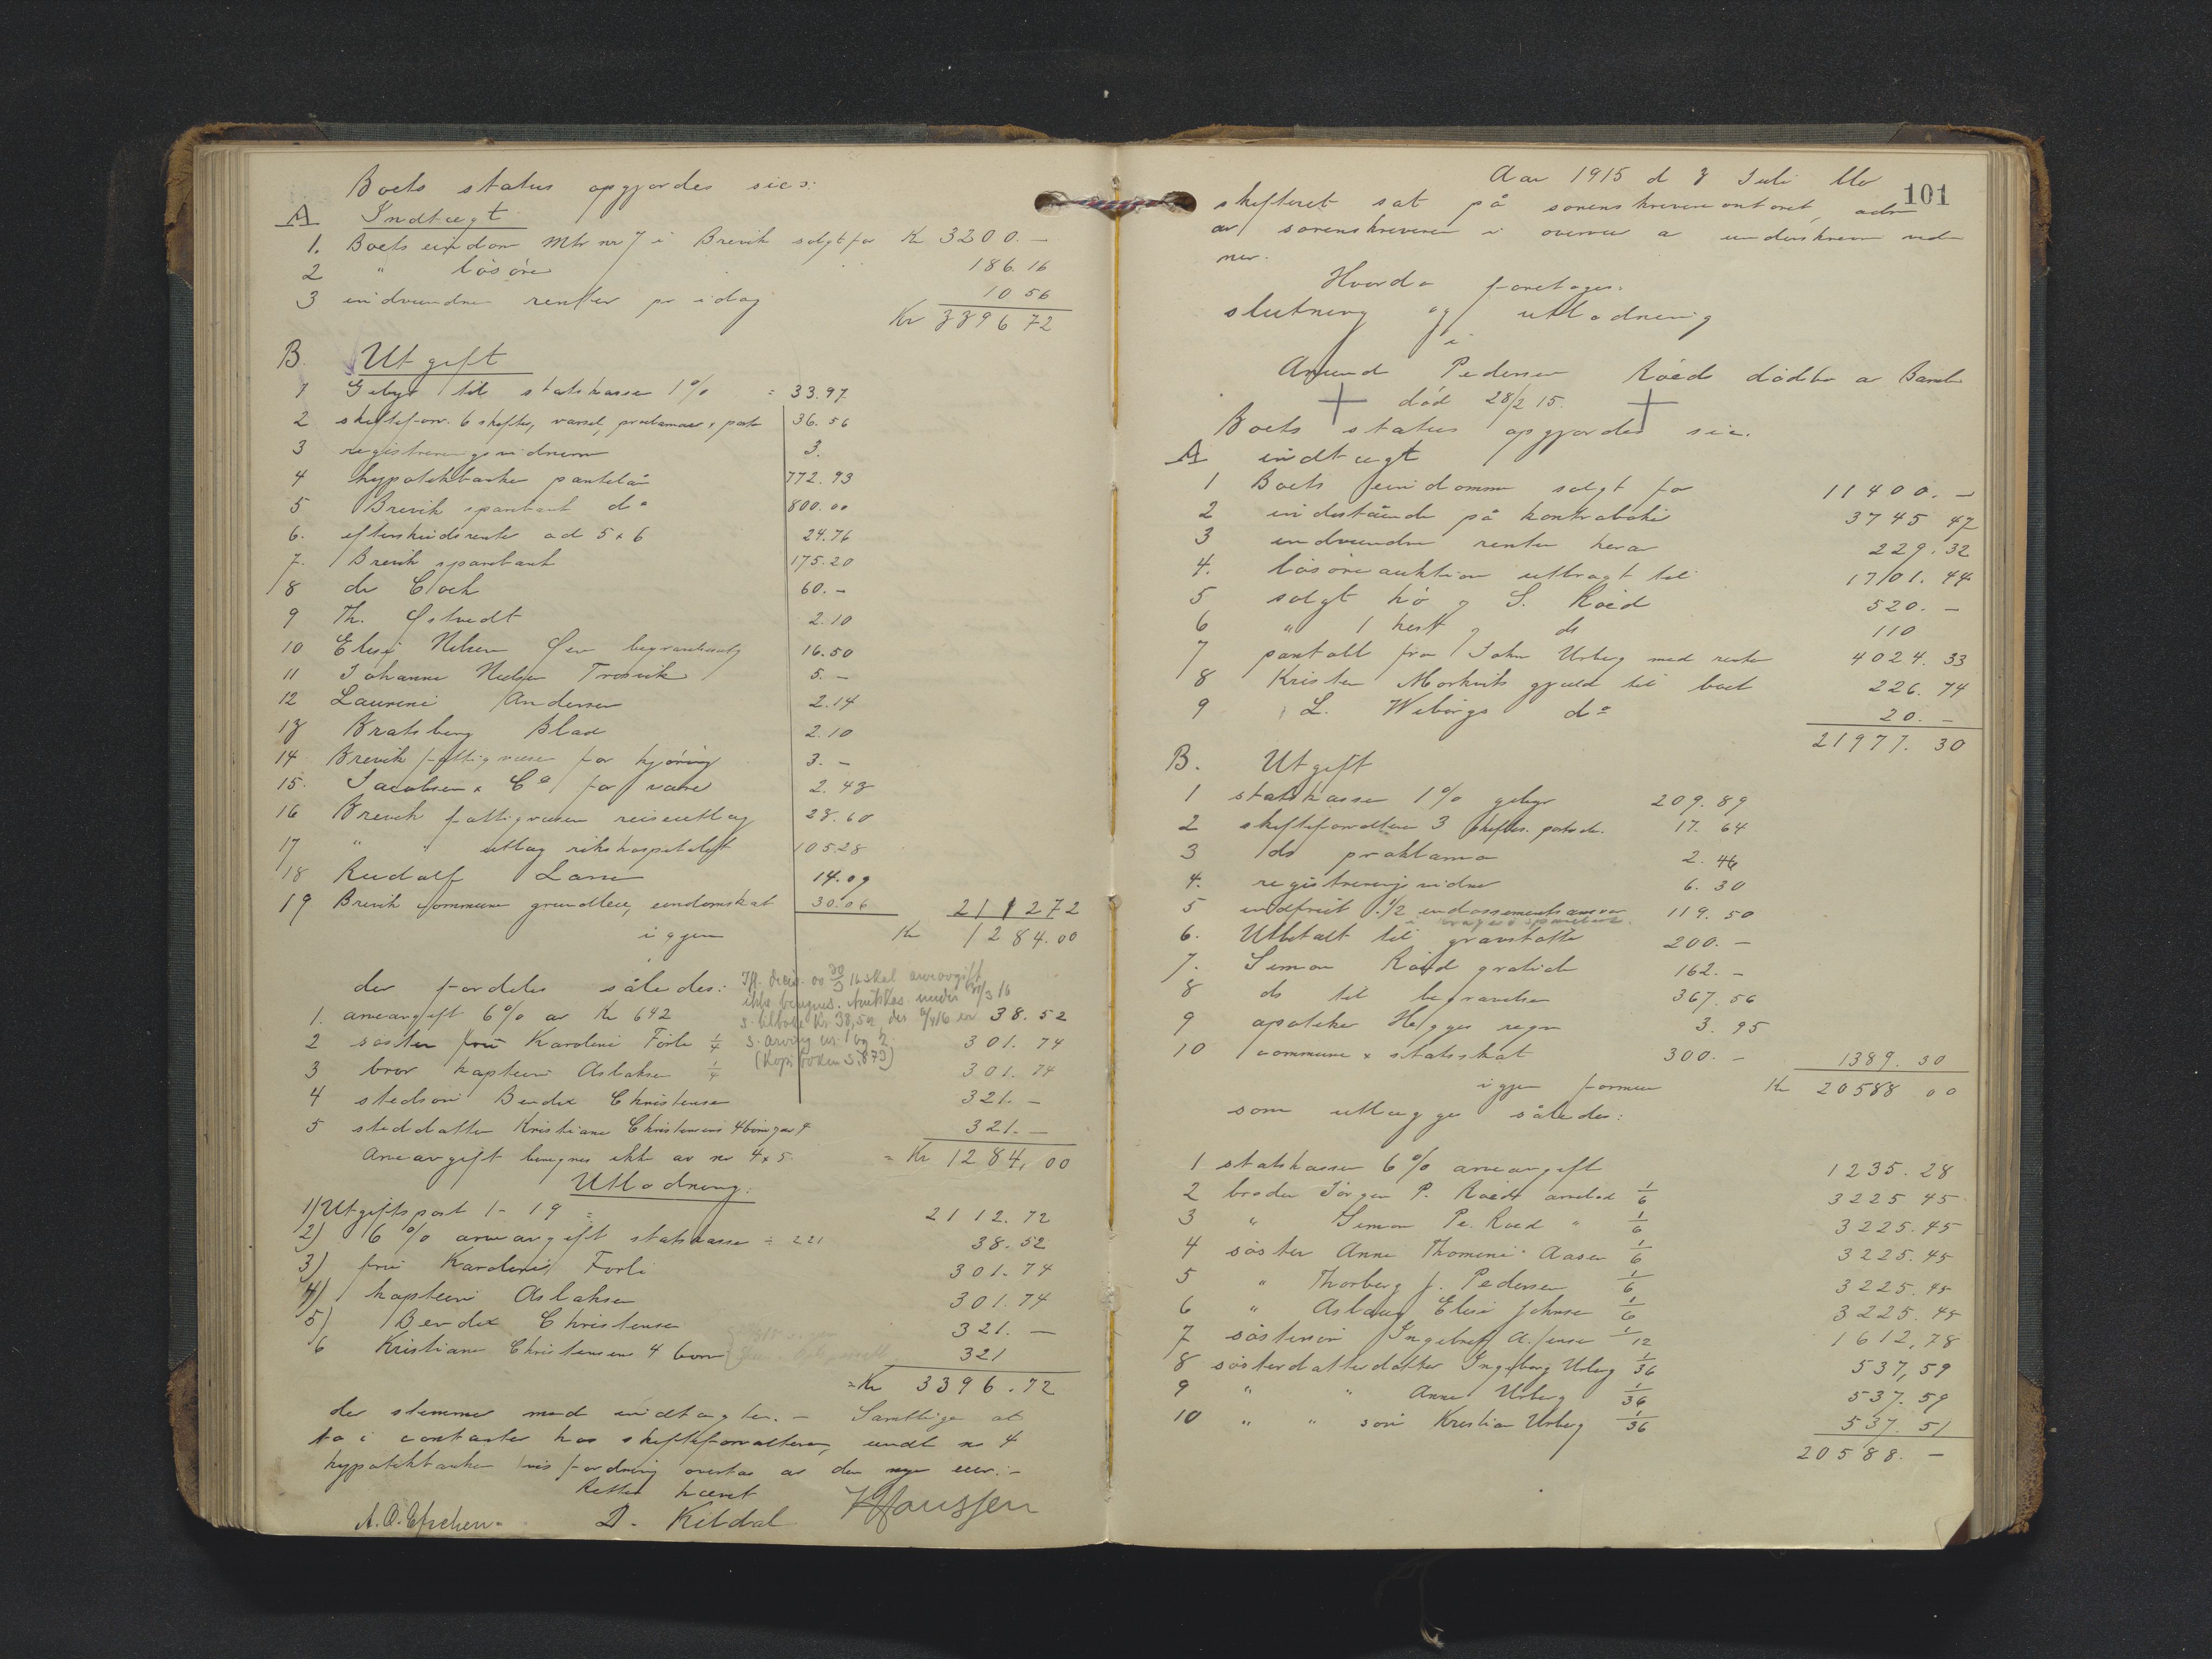 Boets status opgjordes sies:
A Indtægt
1. Boets eiendom Mtr nr 7 i Brevik solgt for Kr 3200.—
2 " lösöre 186.16
3 indvundne renter pr idag 10 56
Kr 3396 72
B. Utgift
1 Gebyr til statskassen 1% = 33.97
2 skifteforv. 6 skifter, varsel, proclamaer, porto 36.56
3 registreringsvidnerne 3.
4 hypotekbanken pantelån 772.93
5 Brevik sparebank do 800.00
6. efterskudsrente ad 5 & 6 24.76
7. Brevik sparebank 175.20
8 dr Cock 60.—
9 Th. Østvedt 2.10
10 Elise Nilsen begravelse 16.50
11 Johanne Nielsen Trosvik 5.—
12 Laurine Andersen 2.14
13 Bratsberg Blad 2.10
14 Brevik fattigvæsen for kjöring 3.—
15. Jacobsen & Co for varer 2.43
16 Brevik fattigvæsen reiseutlæg 28.60
17 " " utlæg rikshospitalet 105.28
18 Rudolf Larsen 14.09
19 Brevik commune grundleie, eiendomskat 30.06 2112 72
igjen Kr 1284.00
der fordeles således:
Ifl. decis. av 30/3 16 skal arveavgift
ikke beregnes.
s. tilbake Kr. 38,52 des 6/4 16 en
s. arving nr. 1 og 2.
(Kopiboken S. 873)
1. arveavgift 6% av Kr 642 38.52
2 söster frue Karoline Forli 1/4 301.74
3 bror kaptein Aslaksen 1/4 301.74
4 stedsön Bendix Christensen 321.—
5 steddatter Kristiane Christensens 4 börn 321.—
Arveavgift beregnes ikke av nr 4 & 5. = Kr 1284,00
Utlodning:
1) Utgiftspost 1-19 = 2112.72
2) 6% arveavgift statskassen = 221 38.52
3) frue Karoline Forli 301.74
4) kaptein Aslaksen 301.74
5) Bendix Christensen 321.—
6 Kristiane Christensens 4 börn 321
= Kr 3396.72
der stemmer med indtægten.— Samtlige at
ta i contanter hos skifteforvalteren, undt nr 4
hypotekbanken hvis fordring overtas av den nye eier.—
Retten hævet
A. O. D. Kildal Hanssen
101
Aar 1915 d 3 Juli blev
skifteret sat på sorenskriverkontoret, adm
av sorenskriveren i overvær a underskrevne vid
ner.
Hvorda foretoges.
slutning og utlodning
i
Amund Pedersen Röed dödbo av Bamle
död 28/2 15.
Boets status opgjordes sies.
A indtægt
1 Boets eiendomme solgt for 11400.—
2 indestående på kontrabok 3745 47
3 indvundne renter herav 229.32
4. lösöreauktion utbragt til 1701.44
5 solgt hö S. Röed 520.—
6 " 1 hest do 110
7 pantobl fra John Urberg med renter 4024.33
8 Kristen Morkviks gjæld til boet 226.74
9 L. Wiborgs do 20.—
21977.30
B. Utgift
1 statskassen 1% gebyr 209.89
2 skifteforvalteren 3 skifter. porto do. 17.64
3 do proklama 2.46
4. registreringsvidner 6.30
5 indfriet 1/2 endossementsansvar 119.50
6. Utbetalt til gravstötte 200.—
7. Simon Röed gratiale 162.—
8 do til begravelse 367.56
9 apoteker Hegges regn 3.95
10 commune & statsskat 300.— 1389.30
igjen formue Kr 20588 00
som utlægges således:
1 statskassen 6% arveavgift 1235.28
2 broder Jörgen P. Röeds arvelod 1/6 3225 45
3 " Simon Pe. Röed " 1/6 3225.45
4 söster Anne Thomine Aasen 1/6 3225.45
5 " Thorberg J. Pedersen 1/6 3225.45
6 " Aslaug Elise Johnsen 1/6 3225.45
7 söstersön Ingebret A. Jensen 1/12 1612,78
8 sösterdatterdatter Ingeborg Urberg 1/36 537,59
9 " " Anna Urberg 1/36 537.59
10 " " sön Kristian Urberg 1/36 537.51
20588.—